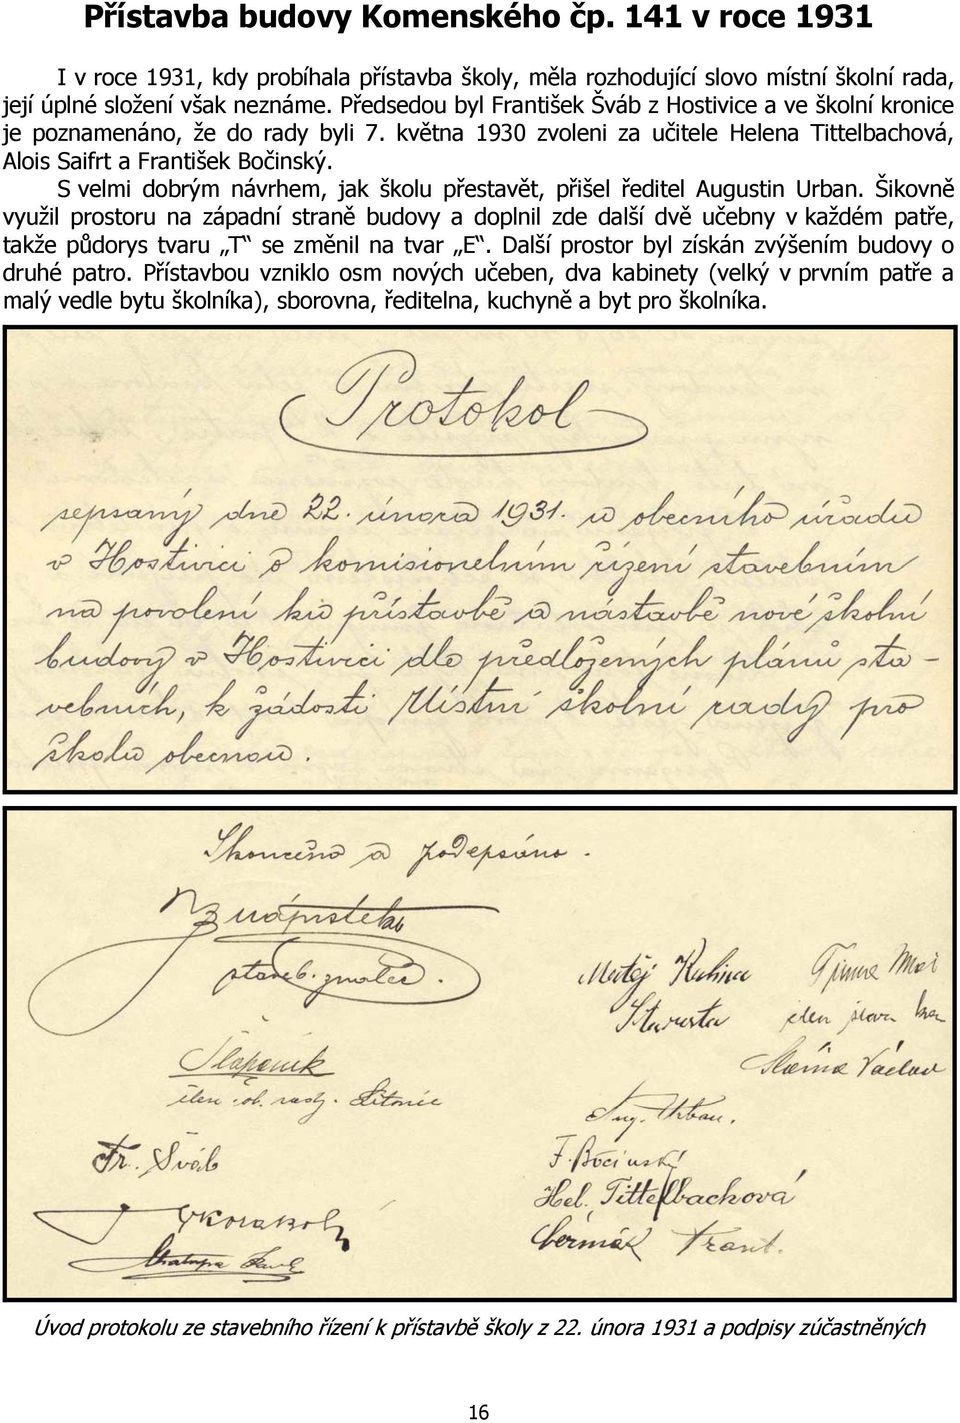 Přístavba budovy Komenského čp. 141 v roce 1931
I v roce 1931, kdy probíhala přístavba školy, měla rozhodující slovo místní školní rada,
její úplné složení však neznáme. Předsedou byl František Šváb z Hostivice a ve školní kronice
je poznamenáno, že do rady byli 7. května 1930 zvoleni za učitele Helena Tittelbachová,
Alois Saifrt a František Bočinský.
S velmi dobrým návrhem, jak školu přestavět, přišel ředitel Augustin Urban. Šikovně
využil prostoru na západní straně budovy a doplnil zde další dvě učebny v každém patře,
takže půdorys tvaru „T“ se změnil na tvar „E“. Další prostor byl získán zvýšením budovy o
druhé patro. Přístavbou vzniklo osm nových učeben, dva kabinety (velký v prvním patře a
malý vedle bytu školníka), sborovna, ředitelna, kuchyně a byt pro školníka.
Protokol
sepsaný dne 22. února 1931. u obecního úřadu
v Hostivici o komisionelním řízení stavebním
na povolení ku přístavbě a nástavbě nové školní
budovy v Hostivici dle předložených plánů sta-
vebních, k žádosti Místní školní rady pro
školu obecnou.
Skončeno a podepsáno.
staveb. znalec.
Matěj Kalina
Starosta
Šlapánik
člen ob. rady. Litovic
Sláma Václav
Aug. Urban.
Fr. Šváb
F. Bočinský
Hel. Tittelbachová
Čermák Frant.
Úvod protokolu ze stavebního řízení k přístavbě školy z 22. února 1931 a podpisy zúčastněných
16